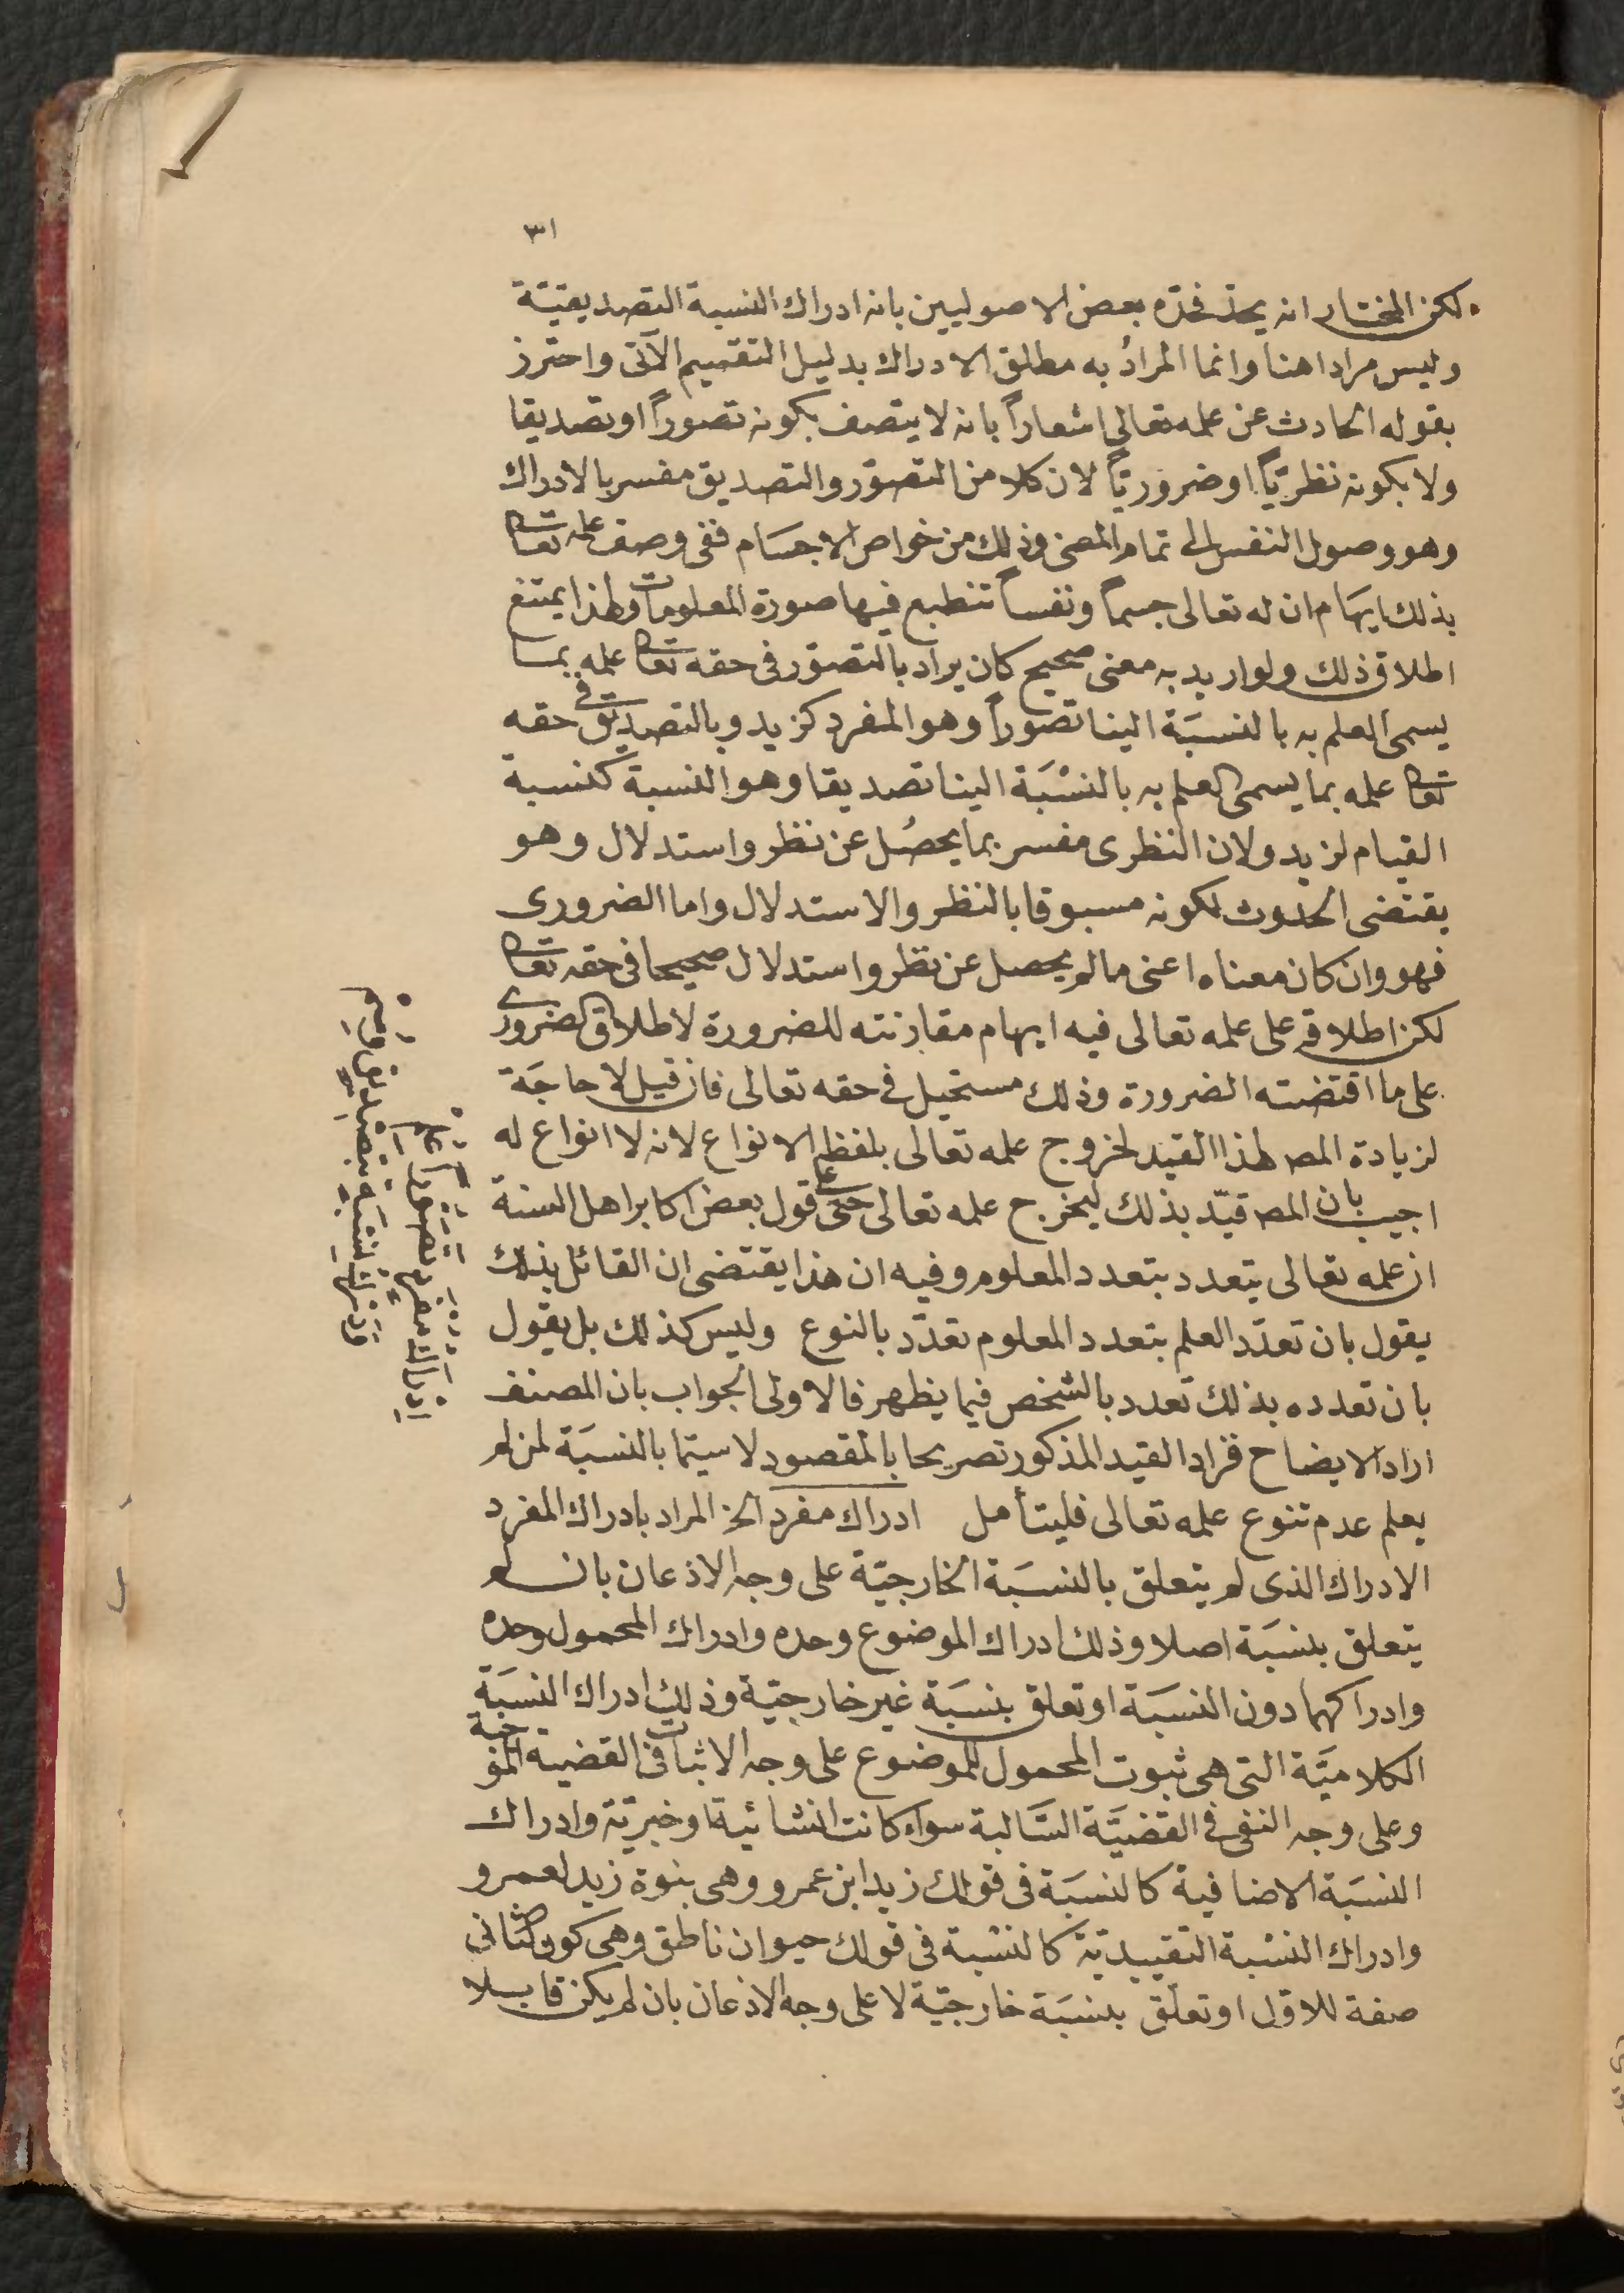 ٣١
لكن المختار انه يحد فحده بعض الاصوليين بانه ادراك النسبة التصديقيّة
وليس مرادا هنا وانما المرادُ به مطلق الادراك بدليل التقسيم الآتى واحترز
بقوله الحادث عن علمه تعالى اشعاراً بانه لا يتصف بكونه تصوراً او تصديقا
ولا بكونه نظريّاً او ضروريّاً لان كلا من التصوّر والتصديق مفسر بالادراك
وهو وصول النفس الى تمام المعنى وذلك من خواص الاجسَام ففى وصف علمه تعالى
بذلك ايهَام ان له تعالى جسماً ونفساً تنطبع فيها صورة المعلومات ولهذا يمتنع
اطلاق ذلك ولو اريد به معنى صحيح كان يراد بالتصوّر فى حقه تعالى علمه بما
يسمى العلم به بالنسبَة الينا تصوراً وهو المفرد كزيد وبالتصديق فى حقه
تعالى علمه بما يسمى العلم به بالنسْبَة الينا تصديقا وهو النسبة كنسبة
القيام لزيد ولان النظرى مفسر بما يحصُل عن نظر واستدلال وهو
يقتضى الحدوث لكونه مسبوقا بالنظر والاستدلال واما الضرورى
فهو وان كان معناه اعنى ما لم يحصل عن نظر واستدلال صحيحا فى حقه تعالى
لكن اطلاقه على علمه تعالى فيه ايهام مقارنته للضرورة لاطلاق الضرورى
على ما اقتضته الضرورة وذلك مستحيل فى حقه تعالى فان قيل لا حاجَة
لزيادة المص لهذا القيد لخروج علمه تعالى بلفظ الانواع لانه لا انواع له
اجيب بان المص قيّد بذلك ليخرج علمه تعالى حتى على قول بعض اكابر اهل السنة
ان علمه تعالى يتعدد بتعدد المعلوم وفيه ان هذا يقتضى ان القائل بذلك
يقول بان تعدّد العلم بتعدد المعلوم تعدّد بالنوع وليس كذلك بل يقول
بان تعدده بذلك تعدد بالشخص فيما يظهر فالاولى الجواب بان المصنف
اراد الايضاح فزاد القيد المذكور تصريحا بالمقصود لا سيّما بالنسبَة لمن لم
يعلم عدم تنوع علمه تعالى فليتأمل ادراك مفرد الخ المراد بادراك المفرد
الادراك الذى لم يتعلق بالنسبَة الخارجيّة على وجه الاذعان بان لم
يتعلق بنسبَة اصلا وذلك ادراك الموضوع وحده وادراك المحمول وحده
وادراكهما دون النسبَة او تعلق بنسبَة غير خارجيّة وذلك ادراك النسبَة
الكلاميَّة التى هى ثبوت المحمول للموضوع على وجه الاثبات فى القضية الموجبة
وعلى وجه النفى فى القضيَّة السَّالبة سواء كانت انشائية او خبريّة وادراك
النسبَة الاضافية كالنسبَة فى قولك زيد ابن عمرو وهى بنوة زيد لعمرو
وادراك النسْبة التقييديّة كالنسْبة فى قولك حيوان ناطق وهى كون الثانى
صفة للاول او تعلّق بنسبَة خارجيّة لا على وجه الاذعان بان لم يكن قابلا
إِدْرَاكُ مُفْرَدٍ تَصَوُّراً عُلِمْ
وَدَرْكُ نِسْبَةٍ بِتَصْدِيقٍ وُسِمْ